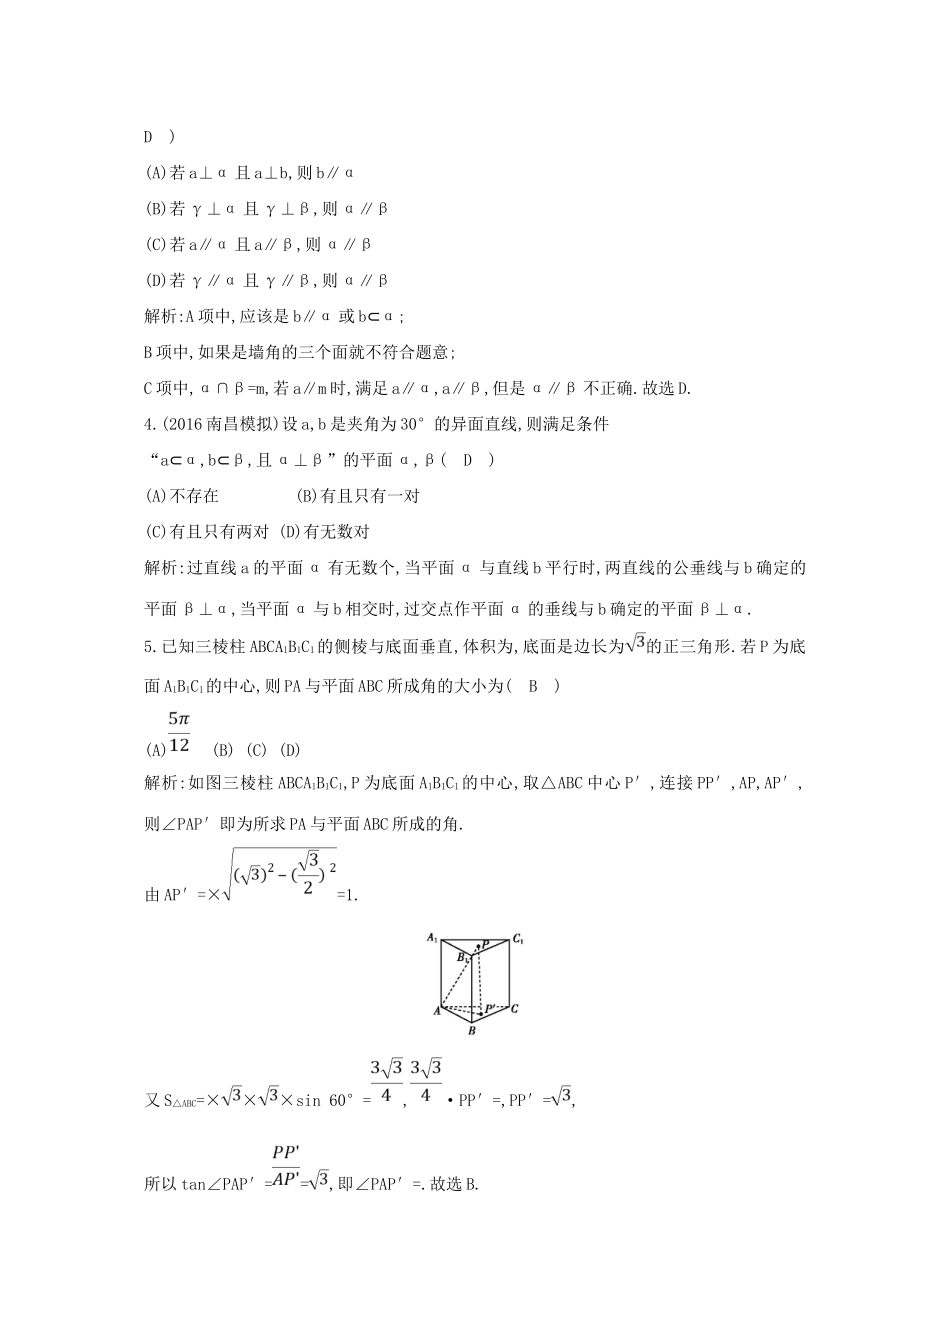 D　)
(A)若 a⊥α 且 a⊥b,则 b∥α
(B)若 γ⊥α 且 γ⊥β,则 α∥β
(C)若 a∥α 且 a∥β,则 α∥β
(D)若 γ∥α 且 γ∥β,则 α∥β
解析:A 项中,应该是 b∥α 或 b⊂α;
B 项中,如果是墙角的三个面就不符合题意;
C 项中,α∩β=m,若 a∥m 时,满足 a∥α,a∥β,但是 α∥β 不正确.故选 D.
4.(2016 南昌模拟)设 a,b 是夹角为 30°的异面直线,则满足条件
“a⊂α,b⊂β,且 α⊥β”的平面 α,β(　D　)
(A)不存在　　　　(B)有且只有一对
(C)有且只有两对 (D)有无数对
解析:过直线 a 的平面 α 有无数个,当平面 α 与直线 b 平行时,两直线的公垂线与 b 确定的
平面 β⊥α,当平面 α 与 b 相交时,过交点作平面 α 的垂线与 b 确定的平面 β⊥α.
5.已知三棱柱 ABCA₁B₁C₁的侧棱与底面垂直,体积为,底面是边长为√3的正三角形.若 P 为底
面 A₁B₁C₁的中心,则 PA 与平面 ABC 所成角的大小为(　B　)
(A)5π/12　(B) (C) (D)
解析:如图三棱柱 ABCA₁B₁C₁,P 为底面 A₁B₁C₁的中心,取△ABC 中心 P′,连接 PP′,AP,AP′,
则∠PAP′即为所求 PA 与平面 ABC 所成的角.
由 AP′=×√((√3)²−(√3/2)²)=1.
A₁ P C₁
B₁
A P′ C
B
又 S△ABC=×√3×√3×sin 60°=3√3/4,3√3/4·PP′=,PP′=√3,
所以 tan∠PAP′=PP'/AP'=√3,即∠PAP′=.故选 B.